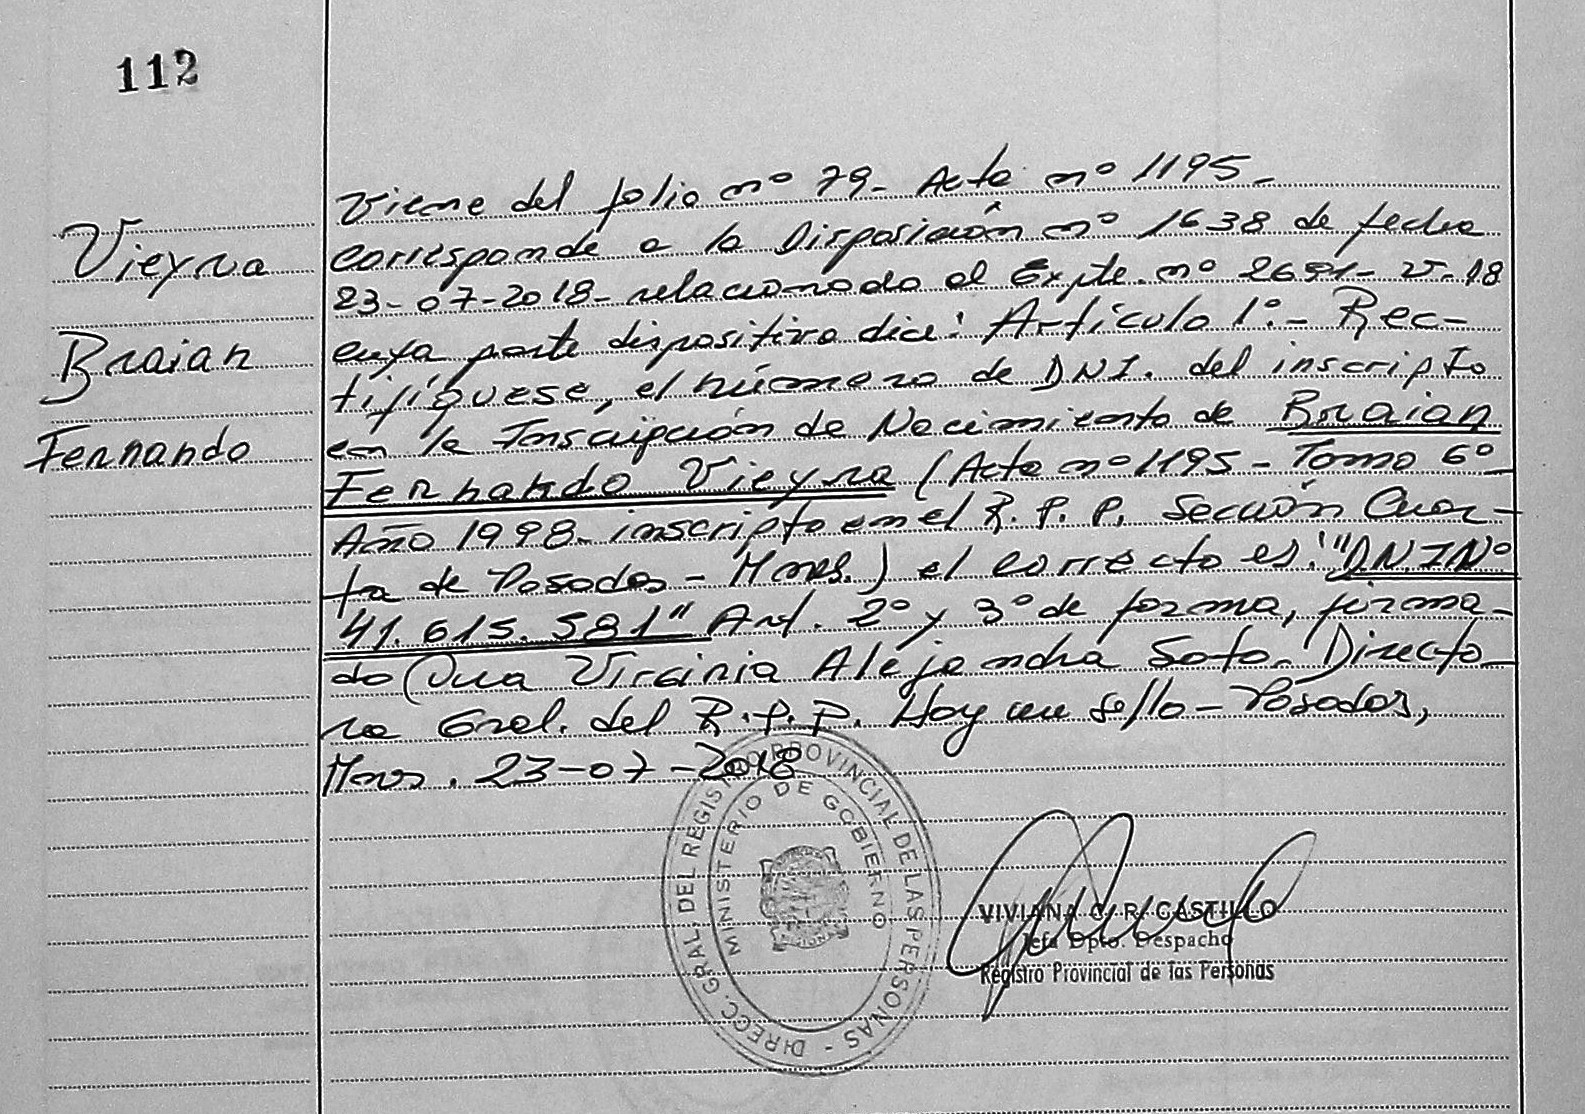 112
Vieyra
Braian
Fernando
Viene del folio nº 79- Acta nº 1195-
corresponde a la Disposición nº 1638 de fecha
23-07-2018- relacionado al Expte. nº 2691- V-18
cuya parte dispositiva dice: Artículo 1º.- Rec-
tifíquese, el número de DNI. del inscripto
en la Inscripción de Nacimiento de Braian
Fernando Vieyra (Acta nº 1195- Tomo 6º
Año 1998- inscripto en el R. P. P. Sección Cuar-
ta de Posadas - Mnes.) el correcto es: "D.N.I Nº
41.615.581" Art. 2º y 3º de forma, firma-
do Virginia Alejandra Soto- Directo-
ra Gral. del R.P.P. Hay un sello- Posadas,
Mnes. 23-07-2018
DIRECC. GRAL. DEL REGISTRO PROVINCIAL DE LAS PERSONAS -
MINISTERIO DE GOBIERNO
VIVIANA C. R. CASTILLO
Jefa Dpto. Despacho
Registro Provincial de las Personas